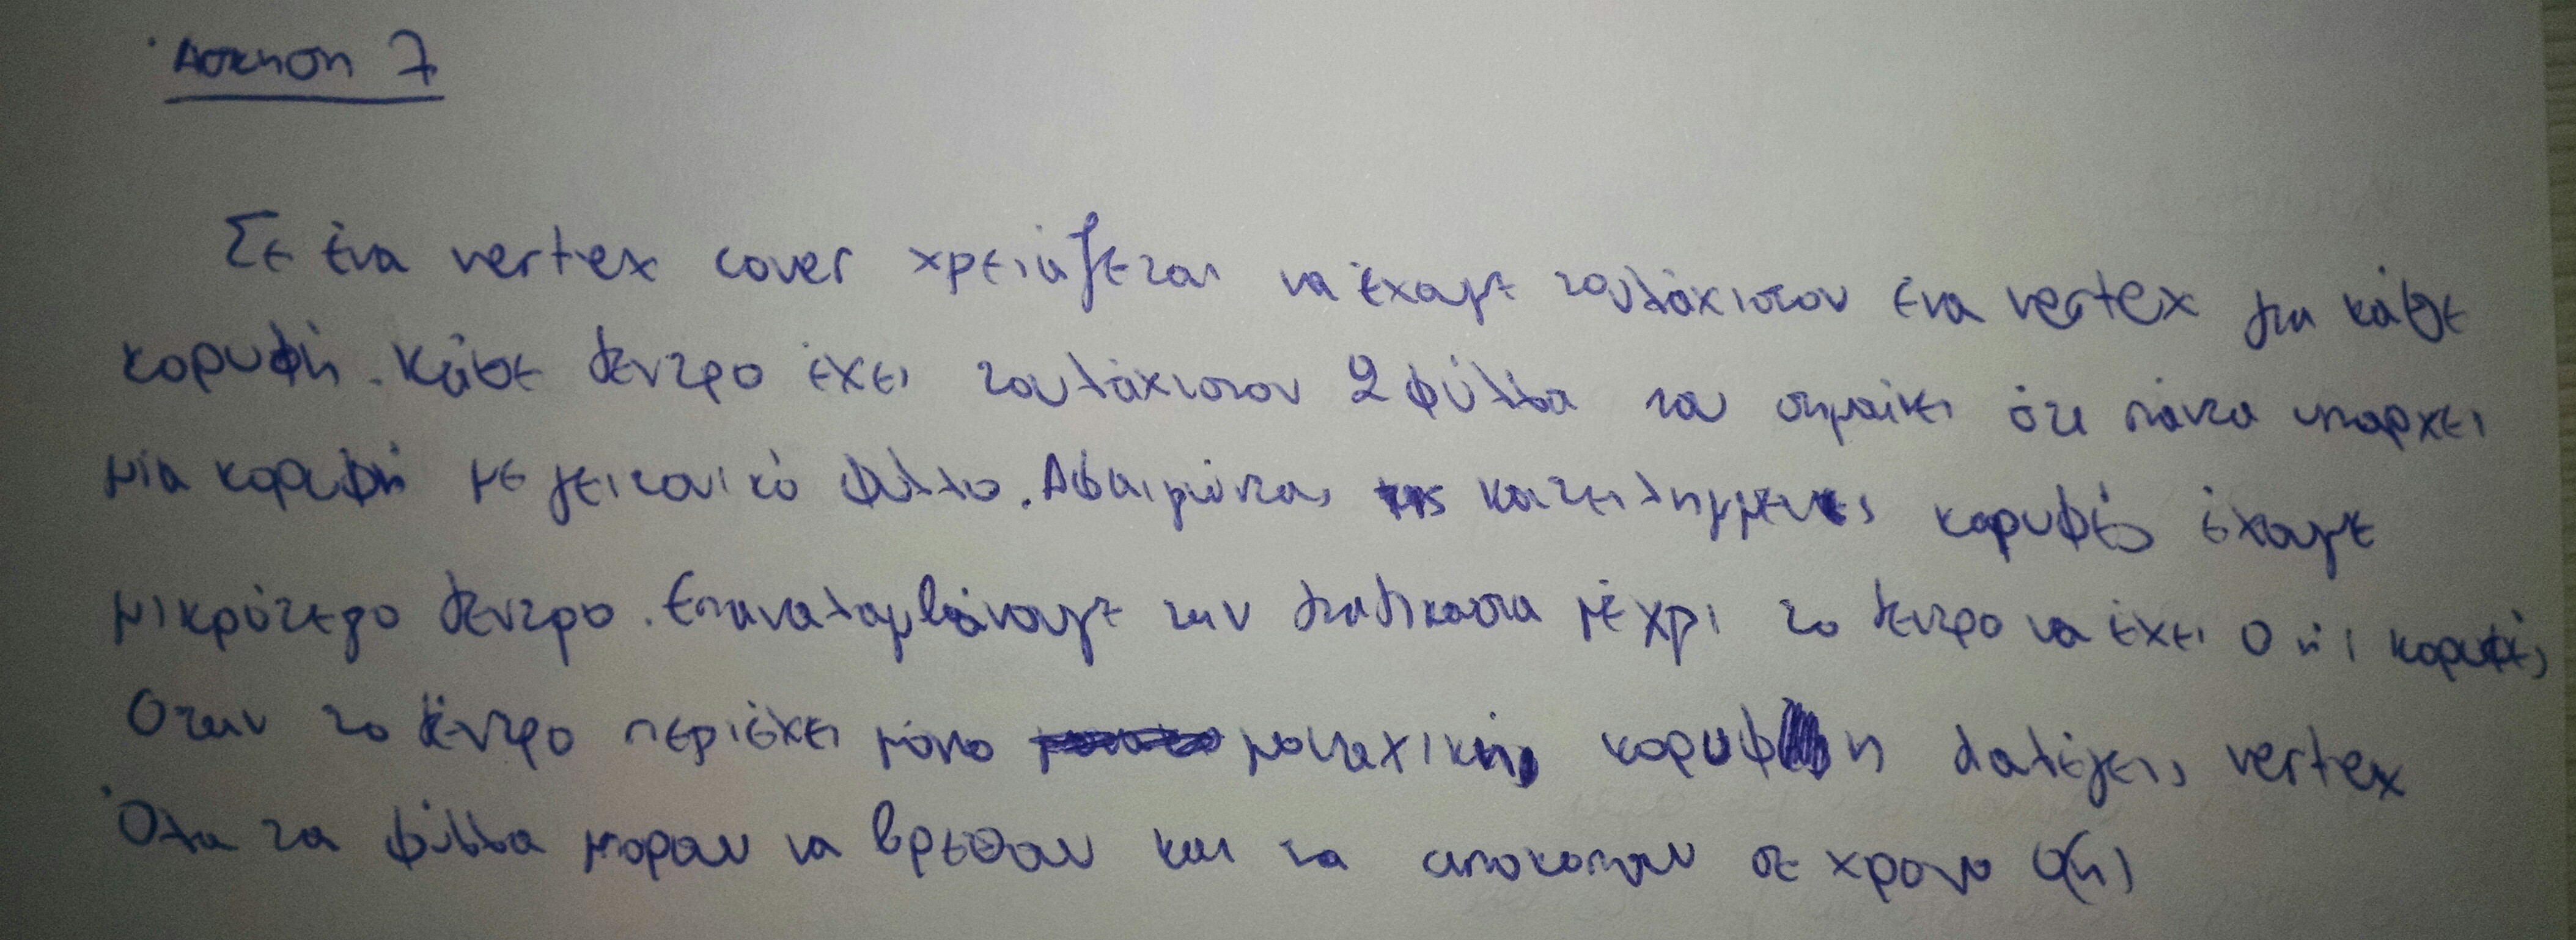 Άσκηση 7
Σε ένα vertex cover χρειάζεται να έχουμε τουλάχιστον ένα vertex για κάθε
κορυφή. Κάθε δεντρο έχει τουλάχιστον 2 φύλλα που σημαίνει ότι πάντα υπαρχει
μία κορυφή με γειτονικό φύλλο. Αφαιρώντας τις κατειλημμενες κορυφές έχουμε
μικρότερο δεντρο. Επαναλαμβάνουμε την διαδικασια μέχρι το δεντρο να έχει 0 ή 1 κορυφές
Οταν το δεντρο περιέχει μόνο κορυφη διαλέγεις vertex
Όλα τα φύλλα μπορουν να βρεθουν και να αποκοπουν σε χρονο O(n)